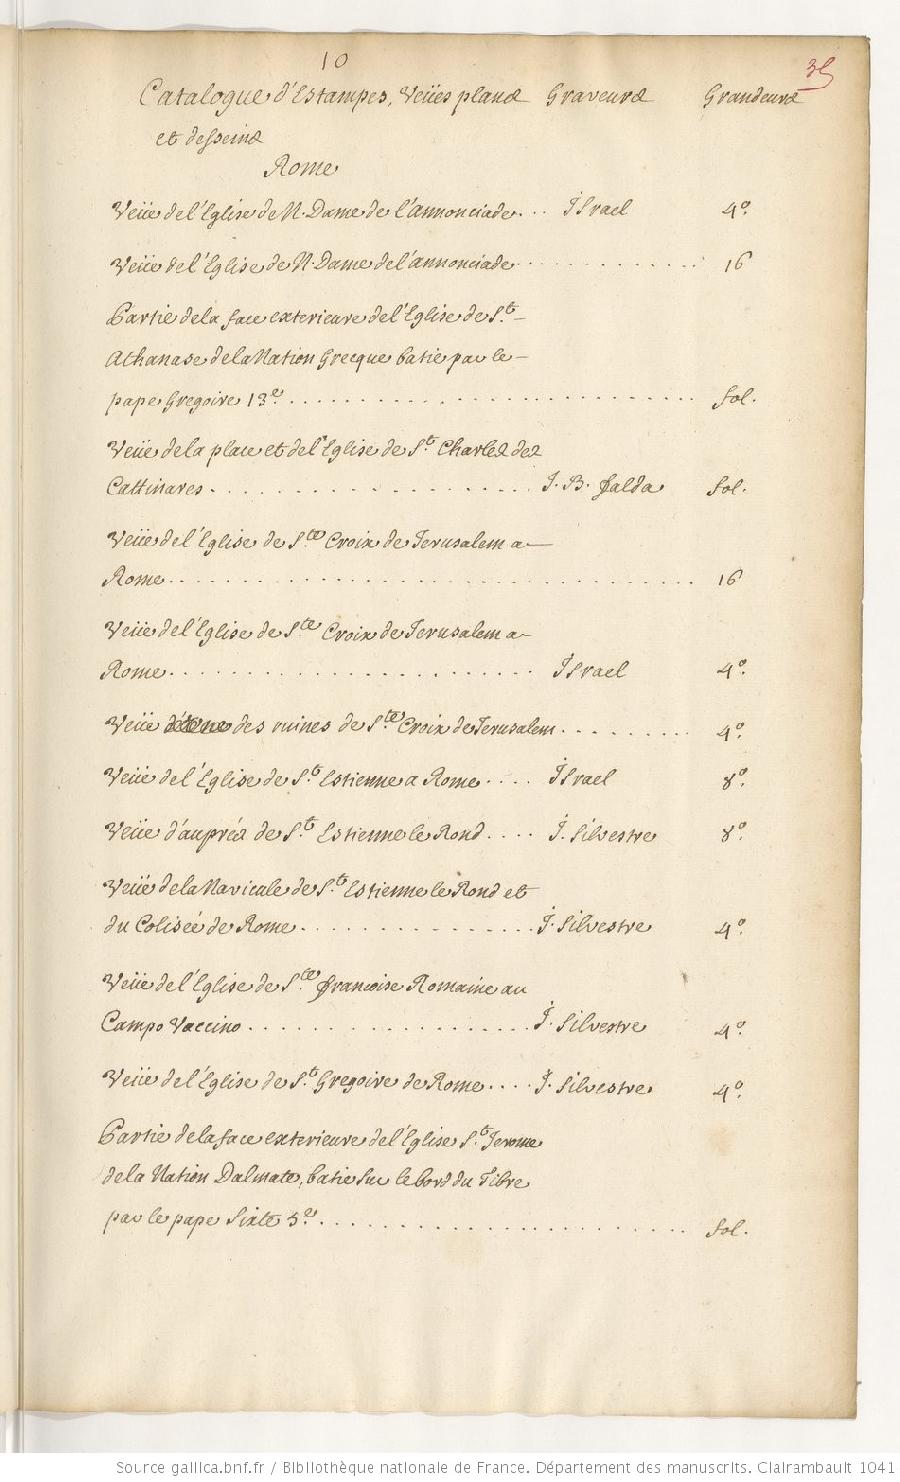 10
35
Catalogue d'Estampes, Veües plans Graveurs Grandeurs
et desseins
Rome
Veüe de l'Eglise de N. Dame de l'annonciade... Israel 4º.
Veüe de l'Eglise de N. Dame de l'annonciade............ 16
Partie de la face exterieure de l'Eglise de St.
Athanase de la Nation Grecque batie par le
pape Gregoire 13e............................ fol.
Veüe de la place et de l'Eglise de St. Charles des
Cattinares................ J. B. Falda fol.
Veüe de l'Eglise de Ste. Croix de Jerusalem a
Rome................................ 16
Veüe de l'Eglise de Ste. Croix de Jerusalem a
Rome.................... Israel 4º.
Veüe des ruines de Ste. Croix de Jerusalem......... 4º.
Veüe de l'Eglise de St. Estienne a Rome.... Israel 8º.
Veüe d'auprés de St. Estienne le Rond.... J. Silvestre 8º.
Veüe de la Navicale de St. Estienne le Rond et
du Colisée de Rome.............. J. Silvestre 4º.
Veüe de l'Eglise de Ste. Françoise Romaine au
Campo Vaccino................. J. Silvestre 4º.
Veüe de l'Eglise de St. Gregoire de Rome.... J. Silvestre 4º.
Partie de la face exterieure de l'Eglise St. Jerome
de la Nation Dalmate, batie sur le bord du Tibre
par le pape Sixte 5e........................ fol.
Source gallica.bnf.fr / Bibliothèque nationale de France. Département des manuscrits. Clairambault 1041